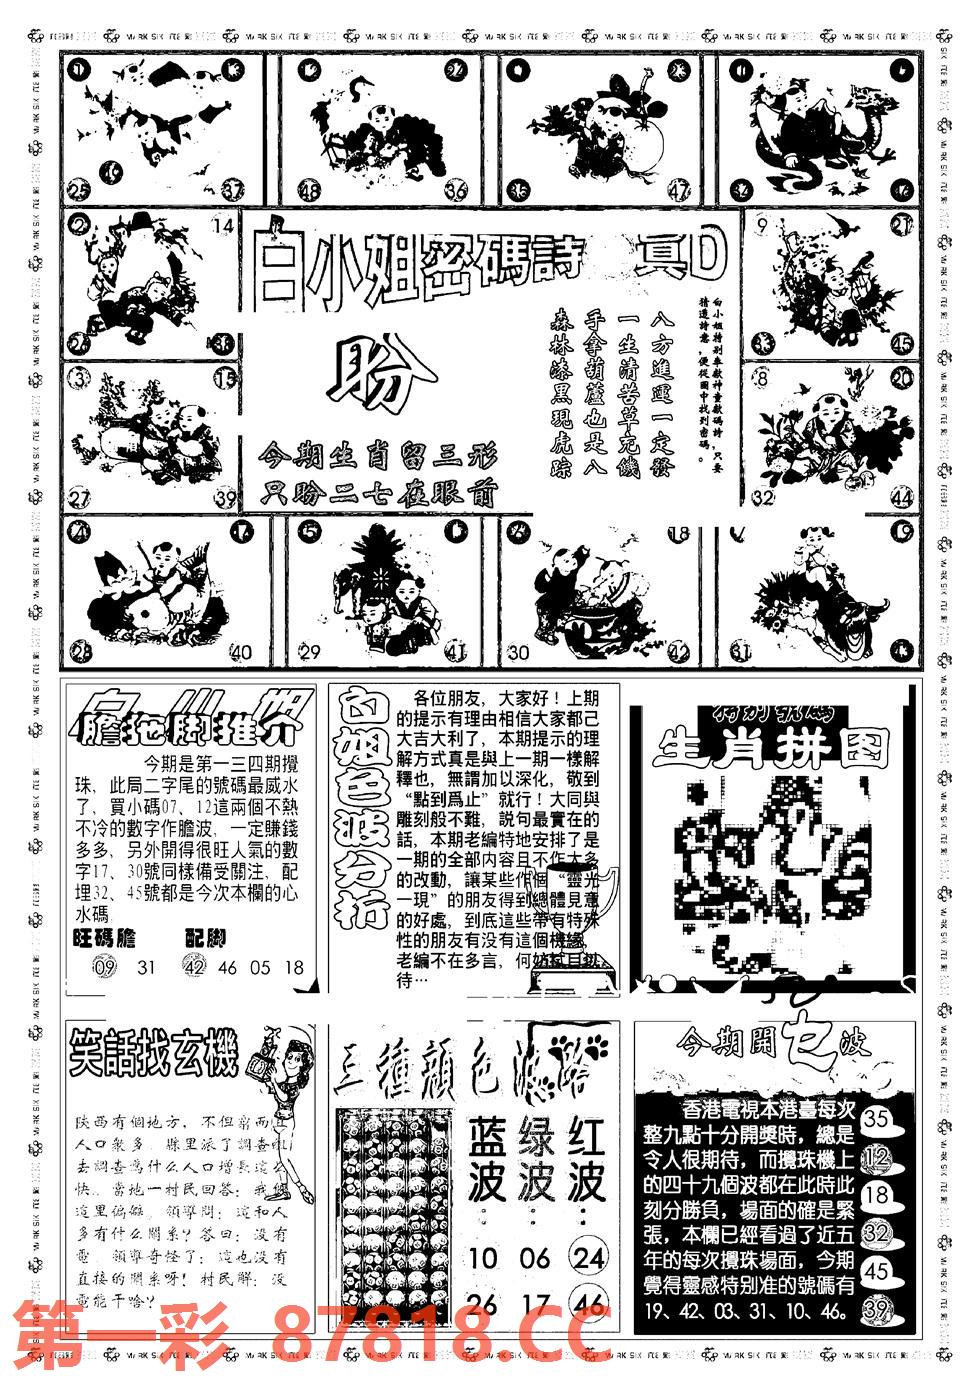 25
37
48
36
35
47
14
9
21
33
45
3
15
27
39
8
20
32
44
28
40
29
41
30
18
42
31
19
白小姐密碼詩
真D
盼
今期生肖留三形
只盼二七在眼前
白小姐特别奉獻神童獻碼詩，只要
猜透詩意，便從圖中找到密碼。
八方進運一定發
一生清苦草充饑
手拿葫蘆也是八
森林漆黑現虎踪
膽拖脚推介
今期是第一三四期攪
珠，此局二字尾的號碼最威水
了，買小碼07、12這兩個不熱
不冷的數字作膽波，一定賺錢
多多，另外開得很旺人氣的數
字17、30號同樣備受關注，配
埋32、45號都是今次本欄的心
水碼
旺碼膽 配脚
09 31 42 46 05 18
白姐色波分析
各位朋友，大家好！上期
的提示有理由相信大家都己
大吉大利了，本期提示的理
解方式真是與上一期一樣解
釋也，無謂加以深化，敬到
“點到爲止”就行！大同與
雕刻般不難，説句最實在的
話，本期老編特地安排了是
一期的全部内容且不作太多
的改動，讓某些作個“靈光
一現”的朋友得到總體見意
的好處，到底這些帶有特殊
性的朋友有没有這個機緣，
老編不在多言，何妨拭目以
待…
特别號碼
生肖拼图
笑話找玄機
陝西有個地方，不但窮而且
人口衆多，縣里派了調查組
去調查爲什么人口增長這么
快。當地一村民回答：我們
這里偏僻。領導問：這和人
多有什么關系？答曰：没有
電。領導奇怪了：這也没有
直接的關系呀！村民解：没
電能干啥？
三種顔色波路
蓝波： 绿波： 红波：
10 06 24
26 17 46
今期開七波
香港電視本港臺每次
整九點十分開獎時，總是
令人很期待，而攪珠機上
的四十九個波都在此時此
刻分勝負，場面的確是緊
張，本欄已經看過了近五
年的每次攪珠場面，今期
覺得靈感特别准的號碼有
19、42、03、31、10、46。
35
12
18
32
45
39
第一彩 87818.CC